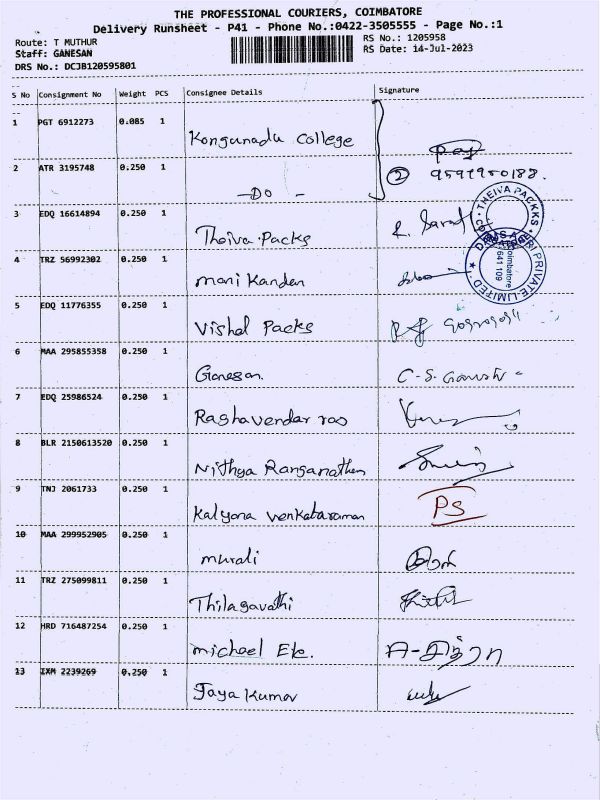 THE PROFESSIONAL COURIERS, COIMBATORE
Delivery Runsheet - P41 - Phone No.:0422-3505555 - Page No.:1
Route: T MUTHUR RS No.: 1205958
Staff: GANESAN RS Date: 14-Jul-2023
DRS No.: DCJB120595801
S No Consignment No Weight PCS Consignee Details Signature
1 PGT 6912273 0.085 1 Kongunadu College
2 ATR 3195748 0.250 1 -DO- 2
3 EDQ 16614894 0.250 1 Theiva Packs
THEIVA PACKKS
4 TRZ 56992302 0.250 1 mani Kandan
PRIVATE LIMITED
Coimbatore
641 109
5 EDQ 11776355 0.250 1 Vishal Packs
6 MAA 295855358 0.250 1 Ganesan.
7 EDQ 25986524 0.250 1 Raghavendar rao
8 BLR 2150613520 0.250 1 Nithya Ranganathan
9 TNJ 2061733 0.250 1 Kalyana Venkataraman PS
10 MAA 299952905 0.250 1 murali
11 TRZ 275099811 0.250 1 Thilagavathi
12 HRD 716487254 0.250 1 micheel Ele.
13 IXM 2239269 0.250 1 Jaya Kumar